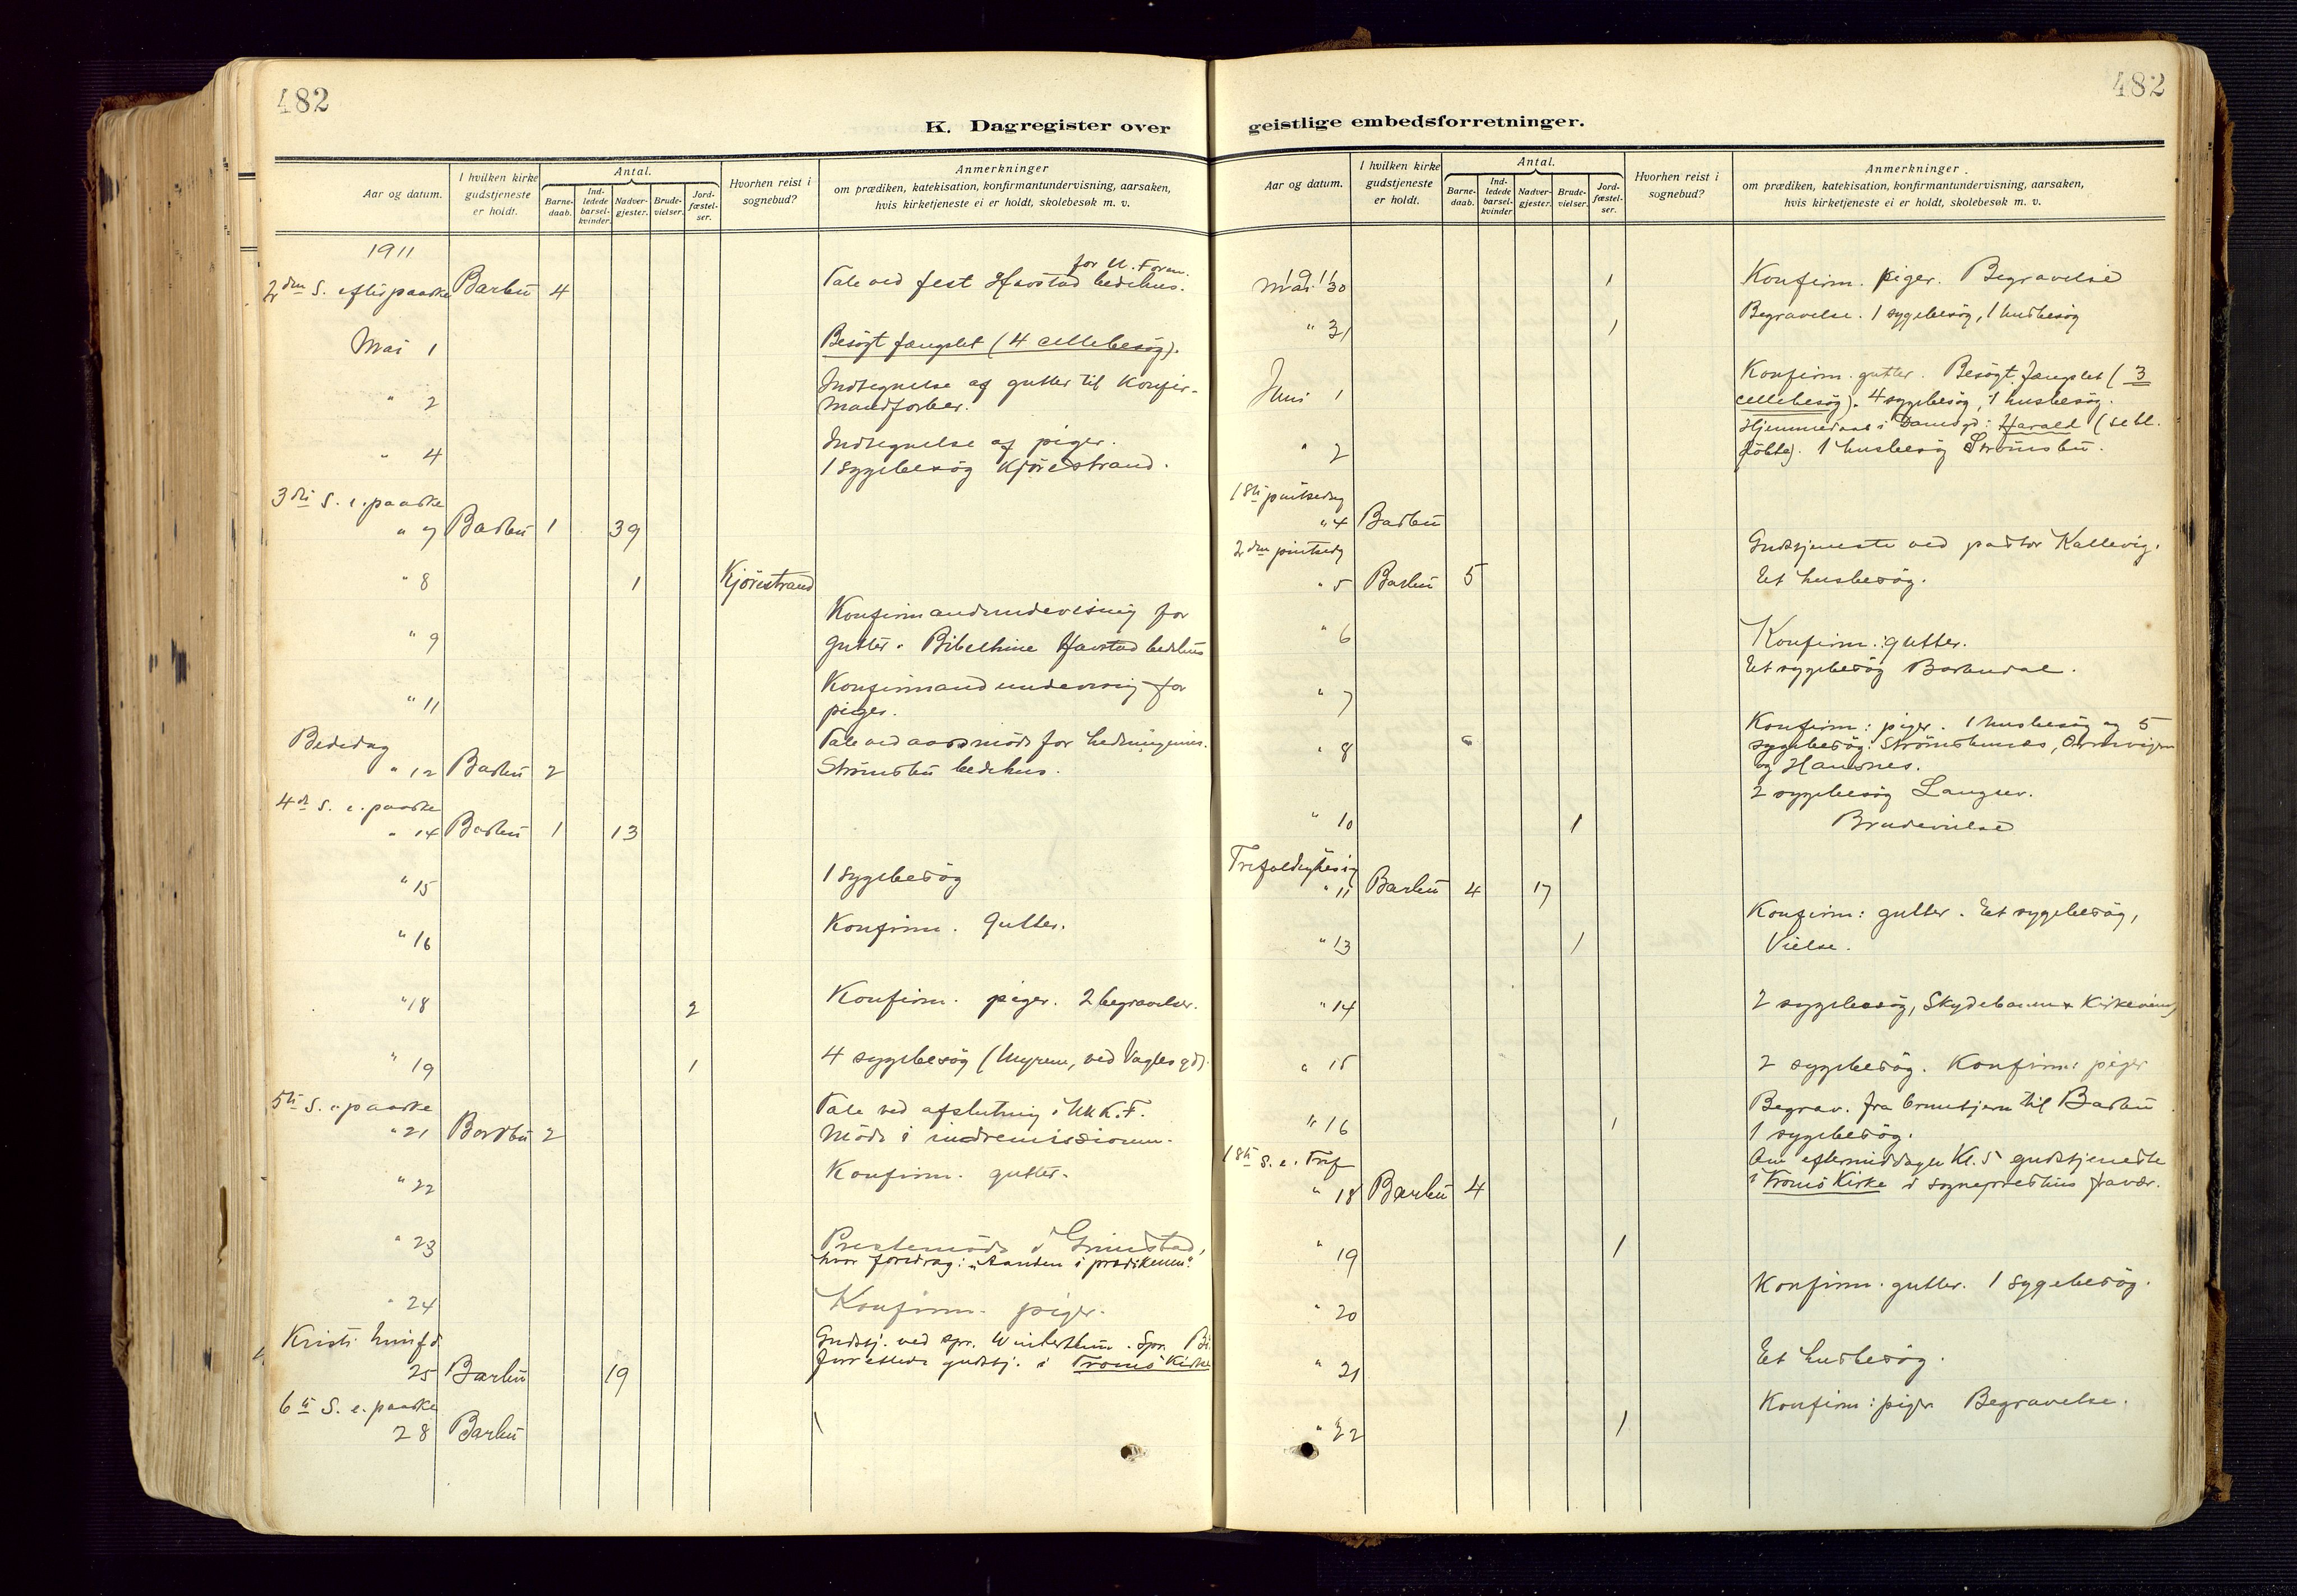 482
K. Dagregister over
Aar og datum.
I hvilken kirke
gudstjeneste
er holdt.
Antal.
Barne-
daab.
Ind-
ledede
barsel-
kvinder.
Nadver-
gjester.
Brude-
vielser.
Jord-
fæstel-
ser.
Hvorhen reist i
sognebud?
Anmerkninger
om prædiken, katekisation, konfirmantundervisning, aarsaken,
hvis kirketjeneste ei er holdt, skolebesøk m. v.
1911
2den S. efter paaske Barbu 4
for U. Foren.
Tale ved fest Havstad bedehus.
Mai 1 Besøgt fængslet (4 cellebesøg).
" 2 Indtegnelse af gutter til Konfir-
mandforber.
" 4 Indtegnelse af piger.
1 sygebesøg Kjørestrand.
3die S. e. paaske
" 7 Barbu 1 39
" 8 1 Kjørestrand
" 9 Konfirmandundervisning for
gutter. Bibeltime Havstad bedehus
" 11 Konfirmandundervisnig for
piger.
Bededag
" 12 Barbu 2 Tale ved aarsmøde for hedningemis.
Strømsbu bedehus.
4de S. e. paaske
" 14 Barbu 1 13
" 15 1 sygebesøg
" 16 Konfirm. gutter.
" 18 2 Konfirm. piger. 2 begravelser.
" 19 1 4 sygebesøg (Myrene, ved Vagles gd).
5te S. e. paaske
" 21 Barbu 2 Tale ved afslutning i Uk K.F.
Møde i indremissionen.
" 22 Konfirm. gutter.
" 23 Prestemøde i Grimstad,
hvor foredrag: "Aanden i prædikenen".
" 24 Konfirm. piger.
Kristi himfd.
25 Barbu 19 Gudstj. ved spr. Winterthun. Spr.
forrettede gudstj. i Tromø Kirke
6te S. e. paaske
28 Barbu
482
geistlige embedsforretninger.
Aar og datum.
I hvilken kirke
gudstjeneste
er holdt.
Antal.
Barne-
daab.
Ind-
ledede
barsel-
kvinder
Nadver-
gjester.
Brude-
vielser.
Jord-
fæstel-
ser.
Hvorhen reist i
sognebud?
Anmerkninger.
om prædiken, katekisation, konfirmantundervisning, aarsaken,
hvis kirketjeneste ei er holdt, skolebesøk m. v.
1911
Mai 30 1 Konfirm. piger. Begravelse
" 31 1 Begravelse. 1 sygebesøg, 1 husbesøg
Juni 1 Konfirm. gutter. Besøgt fængslet (3
cellebesøg). 4 sygebesøg, 1 husbesøg.
Hjemmedaab i : Harald (se bl.
" 2 fødte). 1 husbesøg Strømsbu.
1ste pintsedag
" 4 Barbu
2den pintsedg
" 5 Barbu 5 Gudstjeneste ved pastor Kallevig.
Et husbesøg.
" 6 Konfirm: gutter.
Et sygebesøg Barbudal.
" 7
" 8 Konfirm: piger. 1 husbesøg og 5
sygebesøg: Strømsbunes,
og
2 sygebesøg Langsev.
" 10 1 Brudevielse
Trefoldighedssø
" 11 Barbu 4 17
" 13 1 Konfirm: gutter. Et sygebesøg,
Vielse.
" 14 2 sygebesøg, Skydebanen &
" 15 2 sygebesøg. Konfirm: piger
" 16 1 Begrav. fra til Barbu
1 sygebesøg.
1ste S. e. Tref
" 18 Barbu 4 Om eftermiddagen Kl. 5 gudstjeneste
i Tromø Kirke i sogneprestens fravær.
" 19 1
" 20 Konfirm. gutter. 1 sygebesøg.
" 21 Et husbesøg.
" 22 1 Konfirm: piger Begravelse.